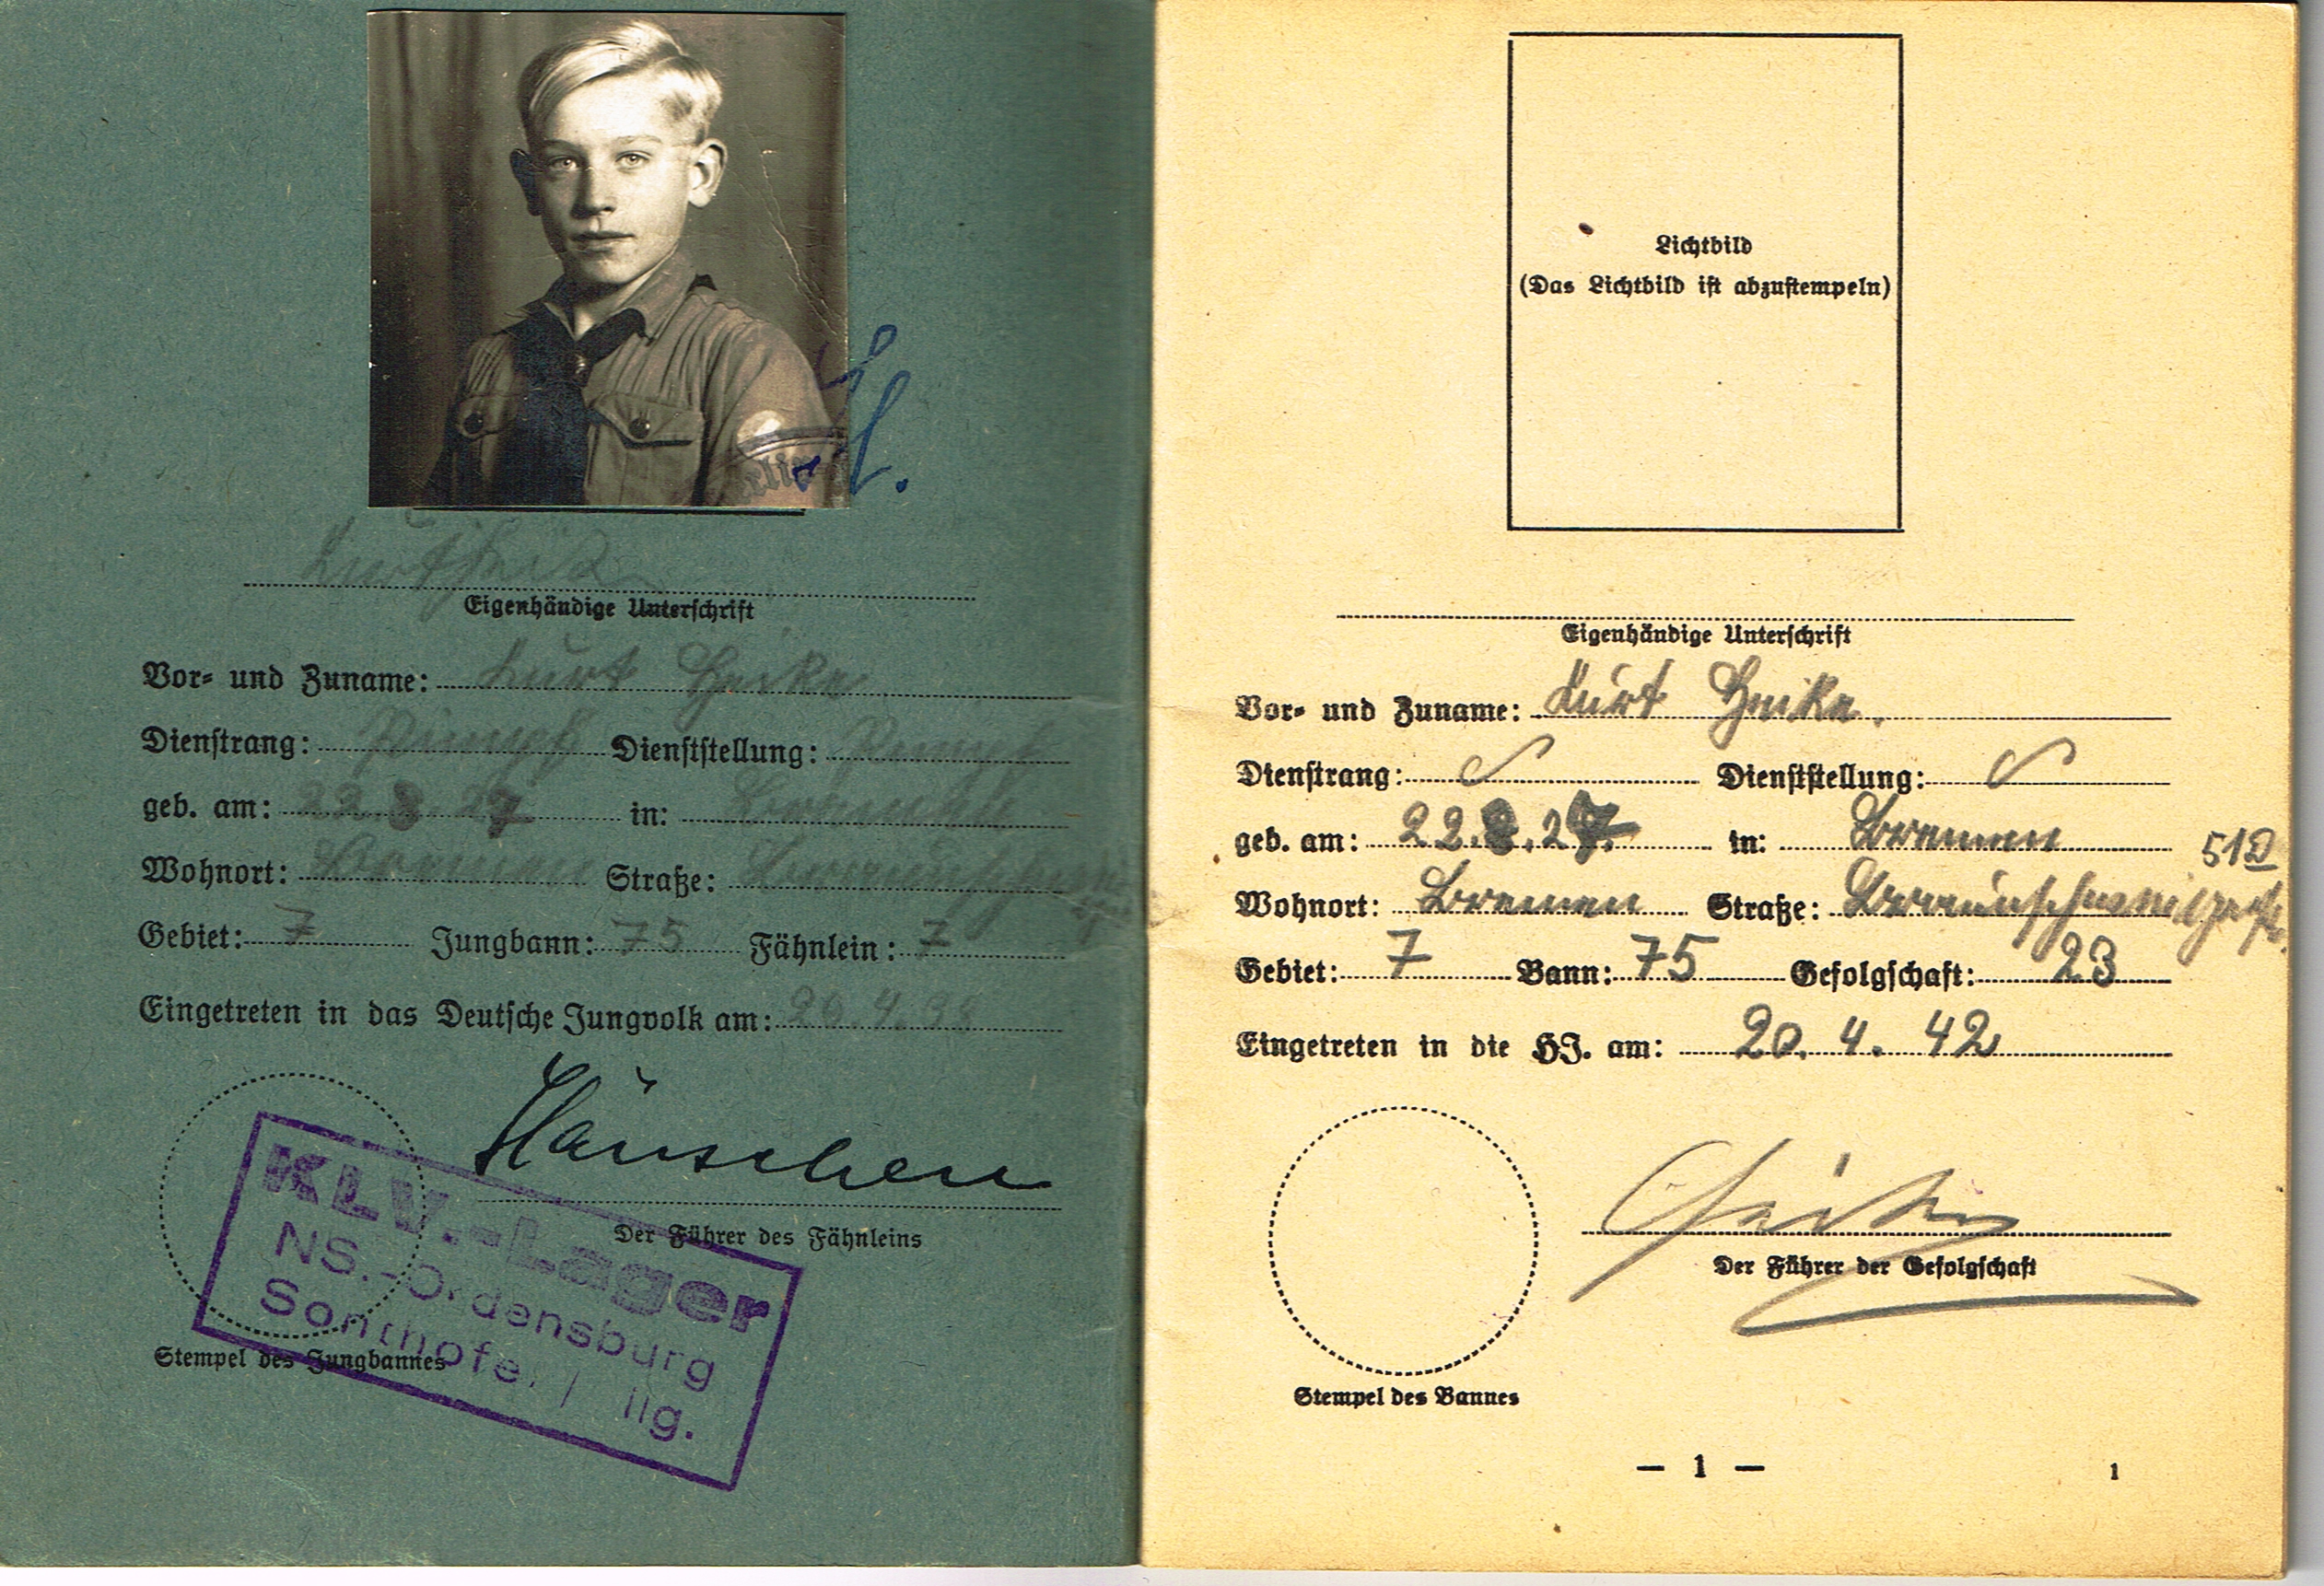 Eigenhändige Unterschrift
Vor- und Zuname: Kurt Heike
Dienstrang: Pimpf Dienststellung: Pimpf
geb. am: 22.8.27 in: Bremen
Wohnort: Bremen Straße:
Gebiet: 7 Jungbann: 75 Fähnlein: 7
Eingetreten in das Deutsche Jungvolk am: 20.4.38
Häuschen
Der Führer des Fähnleins
KLV.-Lager
NS.-Ordensburg
Stempel des Jungbannes
Lichtbild
(Das Lichtbild ist abzustempeln)
Eigenhändige Unterschrift
Vor- und Zuname: Kurt Heike.
Dienstrang: Dienststellung:
geb. am: 22.8.27. in: Bremen
Wohnort: Bremen Straße: Braunschweigerstr.
Gebiet: 7 Bann: 75 Gefolgschaft: 23
Eingetreten in die HJ. am: 20. 4. 42
Der Führer der Gefolgschaft
Stempel des Bannes
— 1 —
1